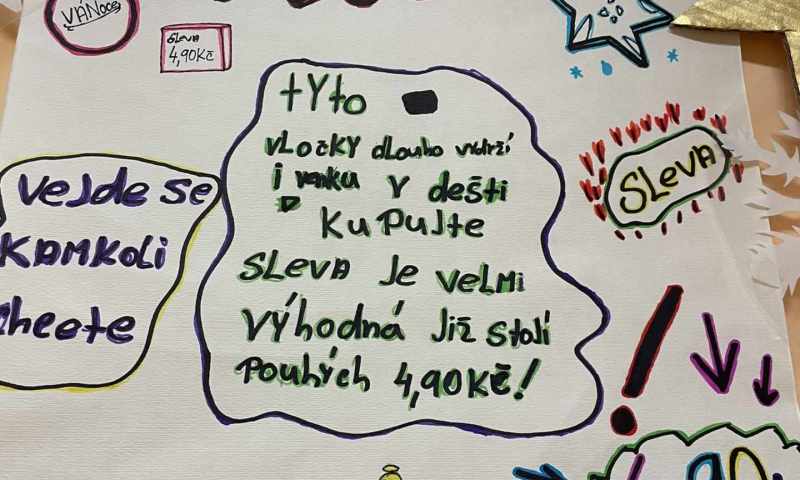 VÁNOCE
SLEVA
4,90Kč
tyto
vLočKY dlouho vydrží
i venku v dešti
KuPuJte
SLeVA Je veLmi
VÝhodná Již stoJí
Pouhých 4,90Kč!
veJde se
KAMKoLi
chcete
SLevA
!
90